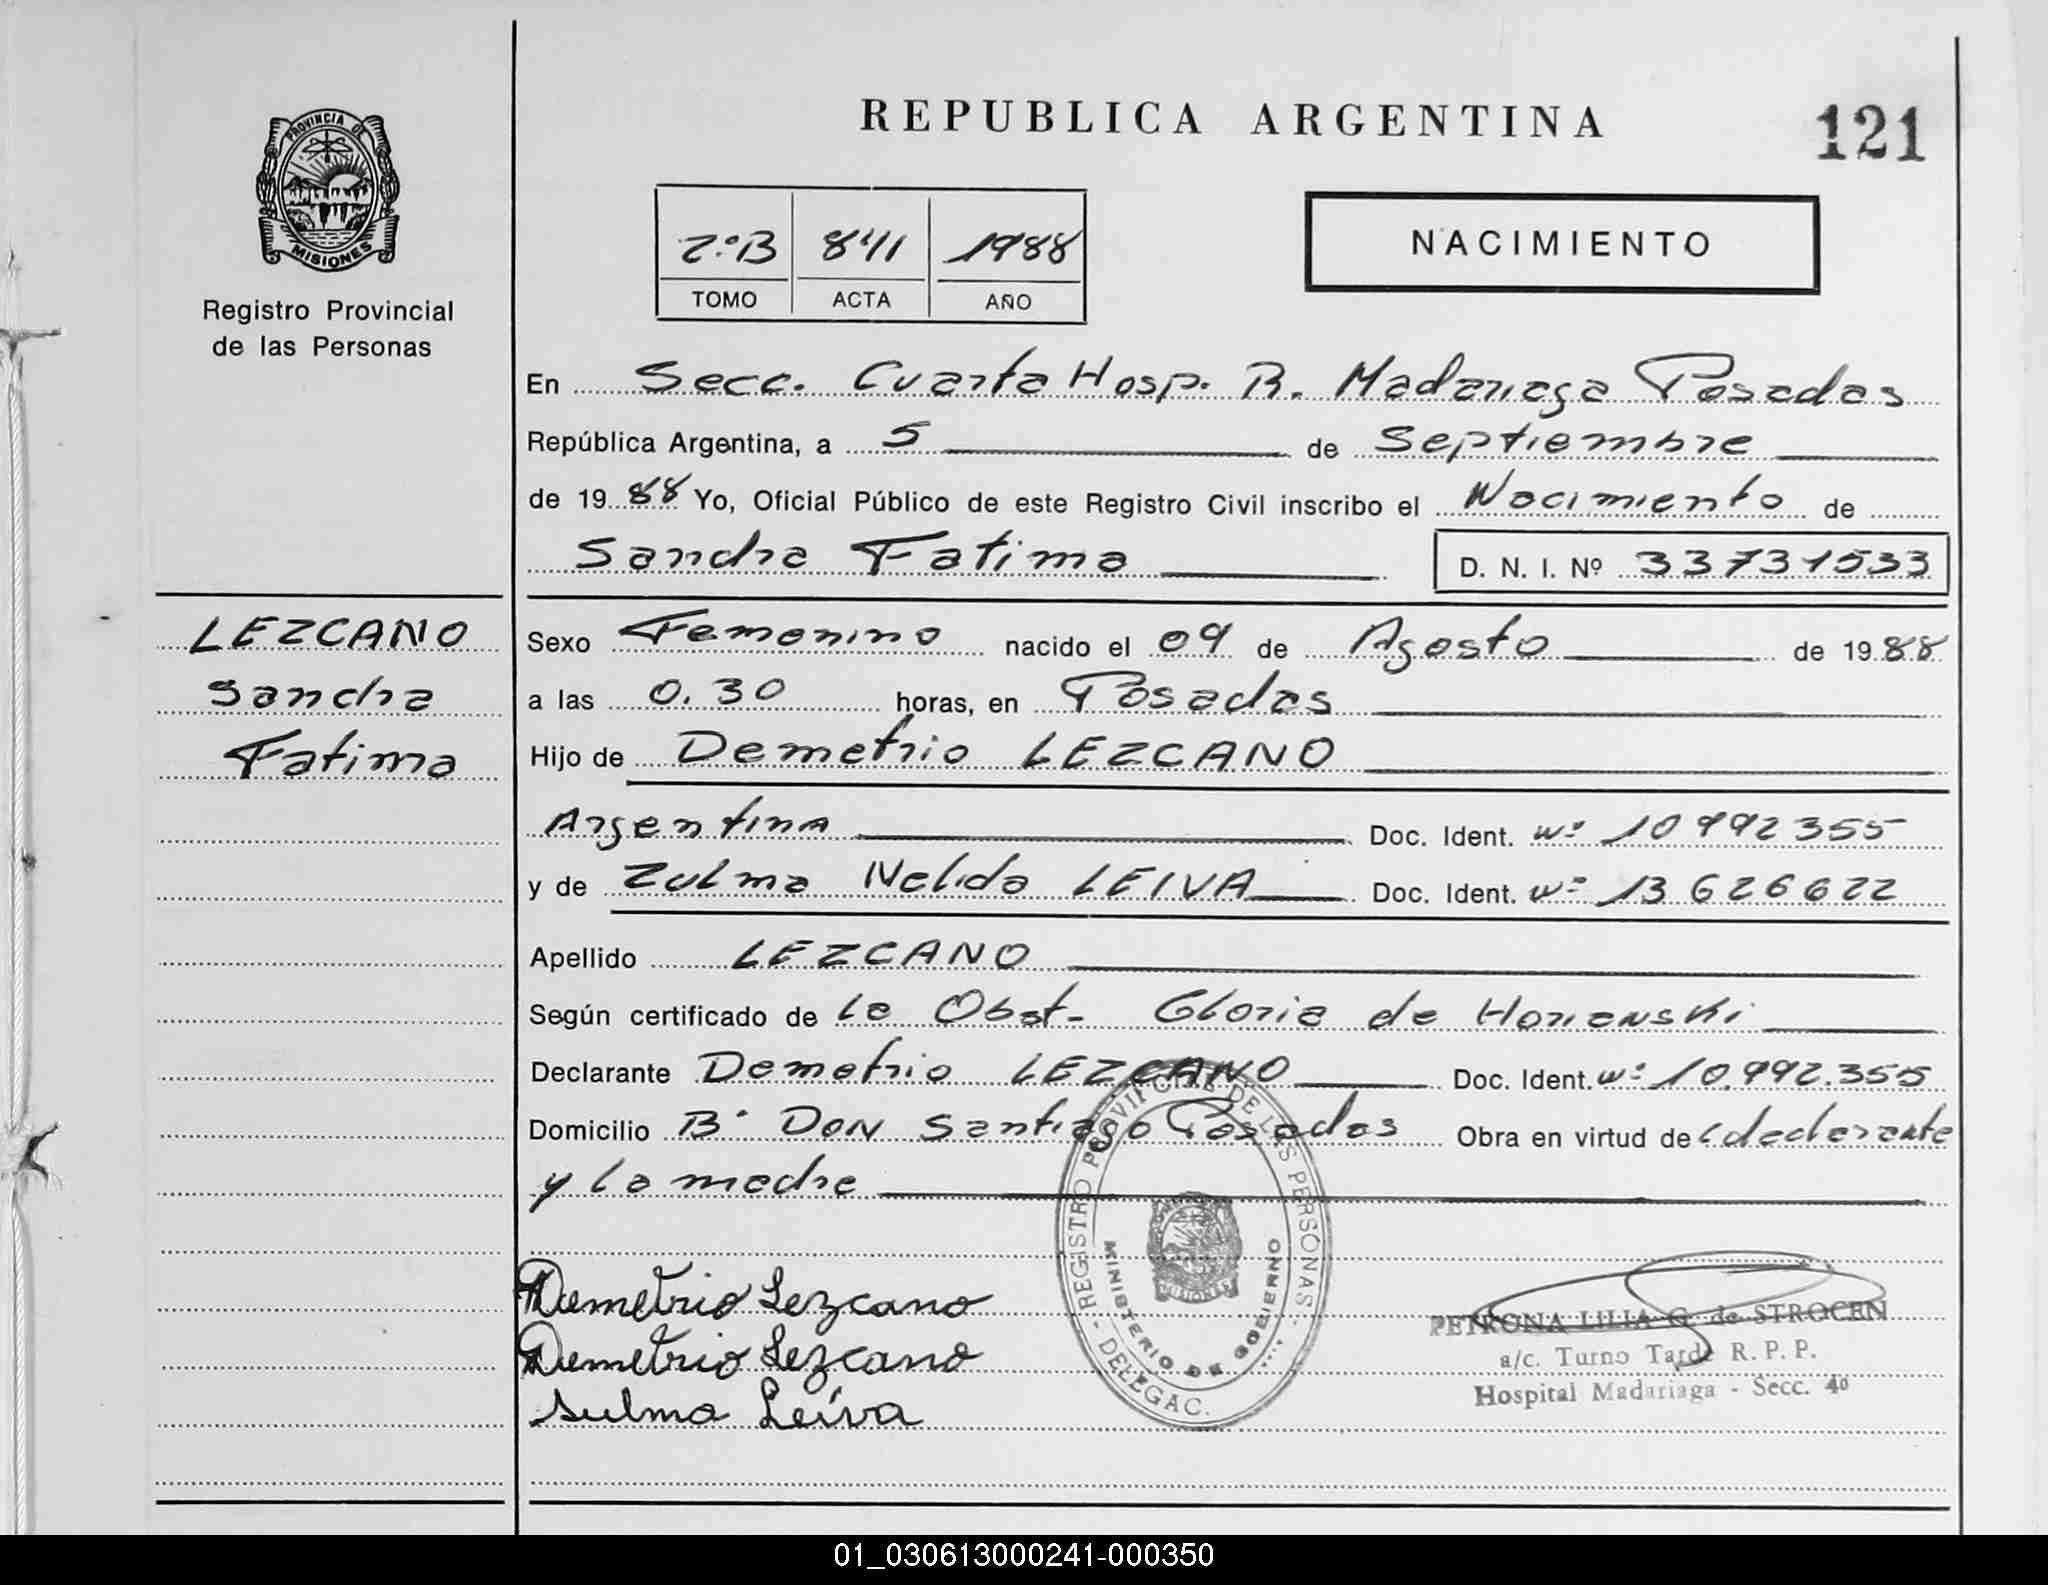 REPUBLICA ARGENTINA
121
PROVINCIA DE
MISIONES
Registro Provincial
de las Personas
2.ºB 841 1988
TOMO ACTA AÑO
NACIMIENTO
En Secc. Cuarta Hosp. R. Madariaga Posadas
República Argentina, a 5 de Septiembre
de 1988 Yo, Oficial Público de este Registro Civil inscribo el Nacimiento de
Sandra Fatima D. N. I. Nº 33731533
LEZCANO
Sandra
Fatima
Sexo Femenino nacido el 09 de Agosto de 1988
a las 0.30 horas, en Posadas
Hijo de Demetrio LEZCANO
Argentina Doc. Ident. Nº 10992355
y de Zulma Nelida LEIVA Doc. Ident. Nº 13626622
Apellido LEZCANO
Según certificado de la Obst. Gloria de
Declarante Demetrio LEZCANO Doc. Ident. Nº 10.992.355
Domicilio Bº DON Santiago Posadas Obra en virtud de declarante
y la madre
Demetrio Lezcano
Demetrio Lezcano
Sulma Leiva
REGISTRO PROVINCIAL DE LAS PERSONAS - DELEGAC.
MINISTERIO DE GOBIERNO
MISIONES
PETRONA LILIA G. de STROCEN
a/c. Turno Tarde R. P. P.
Hospital Madariaga - Secc. 4º
01_030613000241-000350